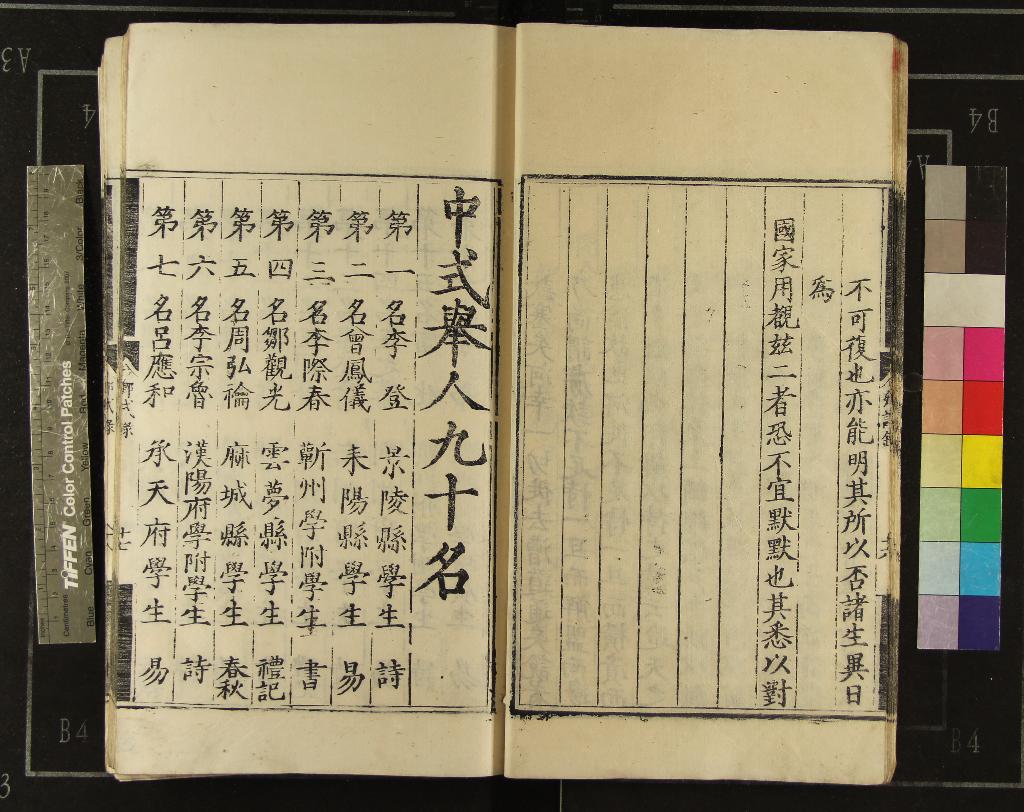 不可復也亦能明其所以否諸生異日
為
國家用觀茲二者恐不宜默默也其悉以對
中式舉人九十名
第一名李登 景陵縣學生 詩
第二名曾鳳儀 耒陽縣學生 易
第三名李際春 蘄州學附學生 書
第四名鄒觀光 雲夢縣學生 禮記
第五名周弘禴 麻城縣學生 春秋
第六名李宗魯 漢陽府學附學生 詩
第七名呂應和 承天府學生 易
TIFFEN Color Control Patches
B4
B4
B4
A3